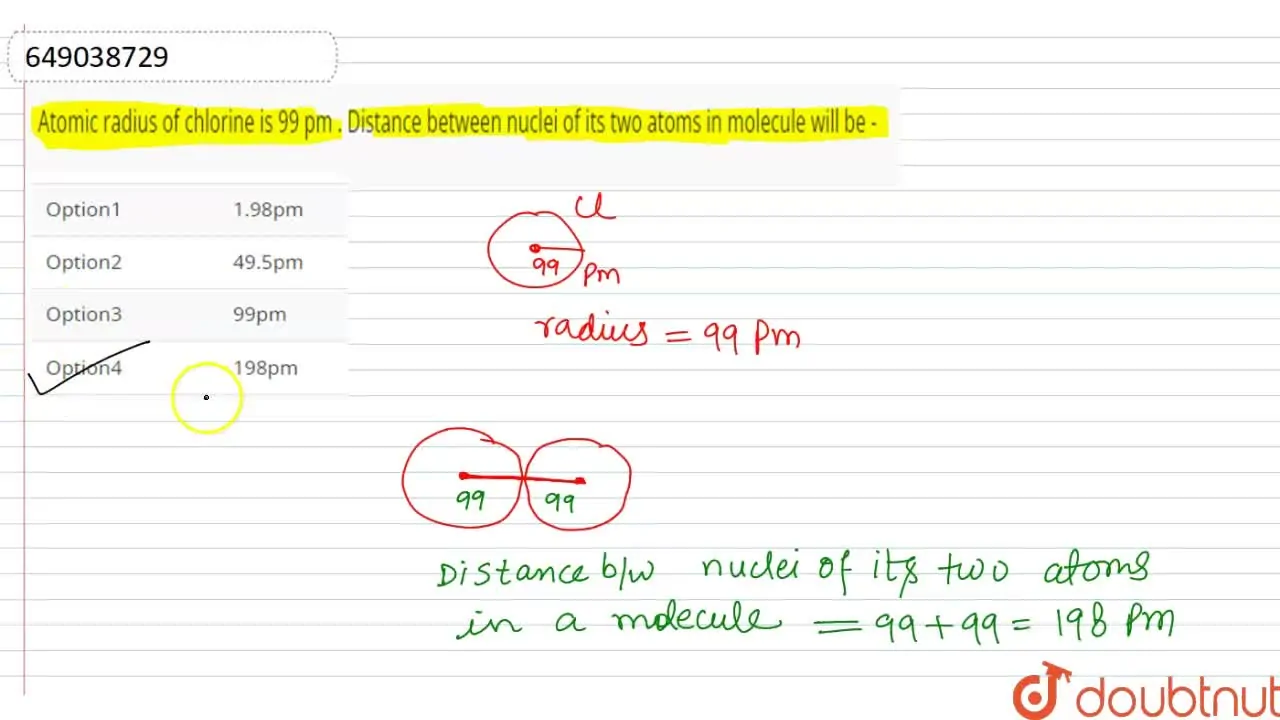 649038729
Atomic radius of chlorine is 99 pm . Distance between nuclei of its two atoms in molecule will be -
Option1 1.98pm
Option2 49.5pm
Option3 99pm
Option4 198pm
Cl
99 pm
radius = 99 Pm
99 99
Distance b/w nuclei of its two atoms
in a molecule = 99 + 99 = 198 Pm
doubtnut